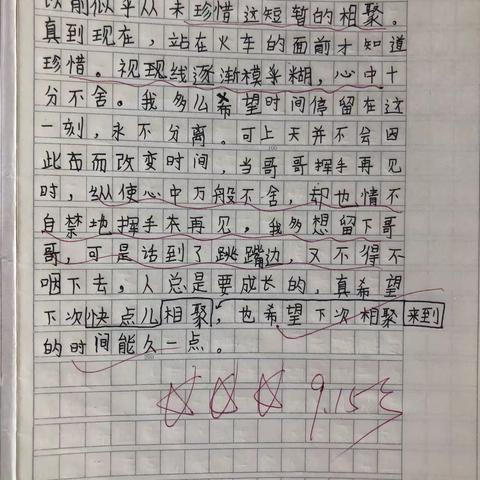 以前似乎从未珍惜这短暂的相聚。
真到现在，站在火车的面前才知道
珍惜。视现线逐渐模糊，心中十
分不舍。我多么希望时间停留在这
一刻，永不分离。可上天并不会因
此而改变时间，当哥哥挥手再见
时，纵使心中万般不舍，却也情不
自禁地挥手来再见，我多想留下哥
哥，可是话到了跳嘴边，又不得不
咽下去，人总是要成长的，真希望
下次快点儿相聚，也希望下次相聚来到
的时间能久一点。
9.15